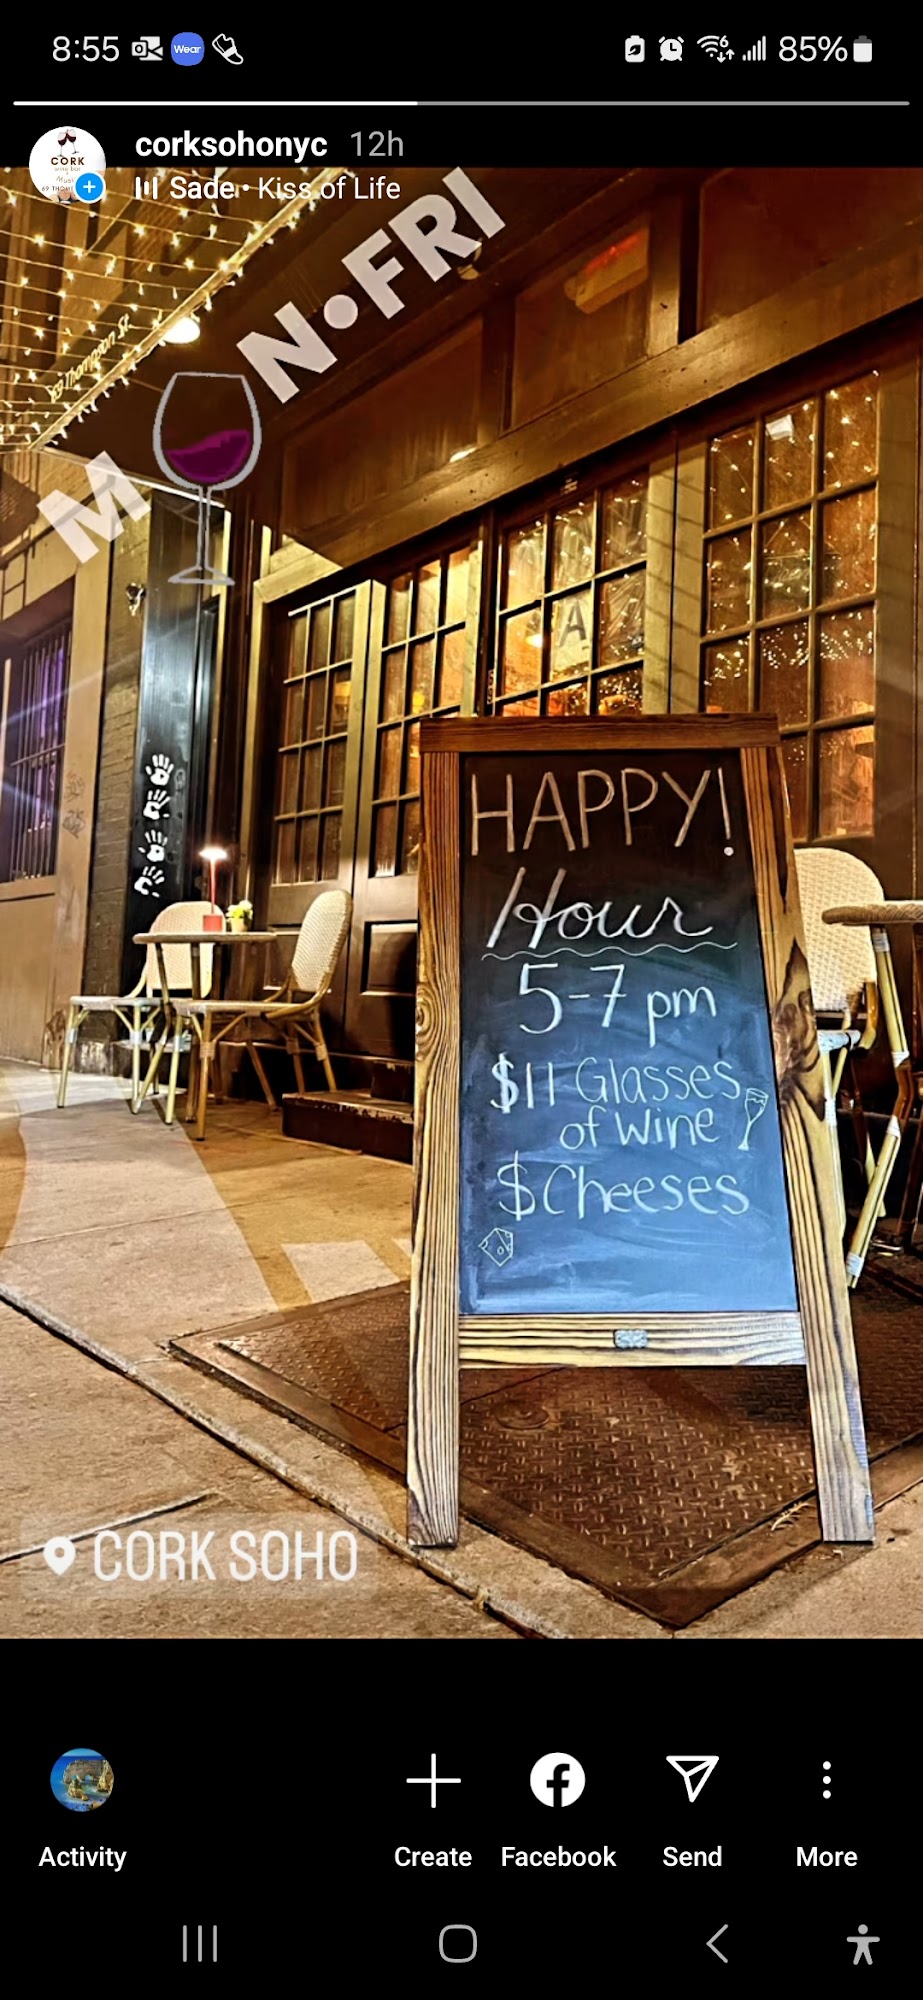 8:55
Wear
6
85%
corksohonyc 12h
CORK
wine bar
Sade • Kiss of Life
M N•FRI
69 Thompson St.
A
HAPPY!
Hour
5-7 pm
$11 Glasses
of Wine
$Cheeses
CORK SOHO
Activity
Create
Facebook
Send
More